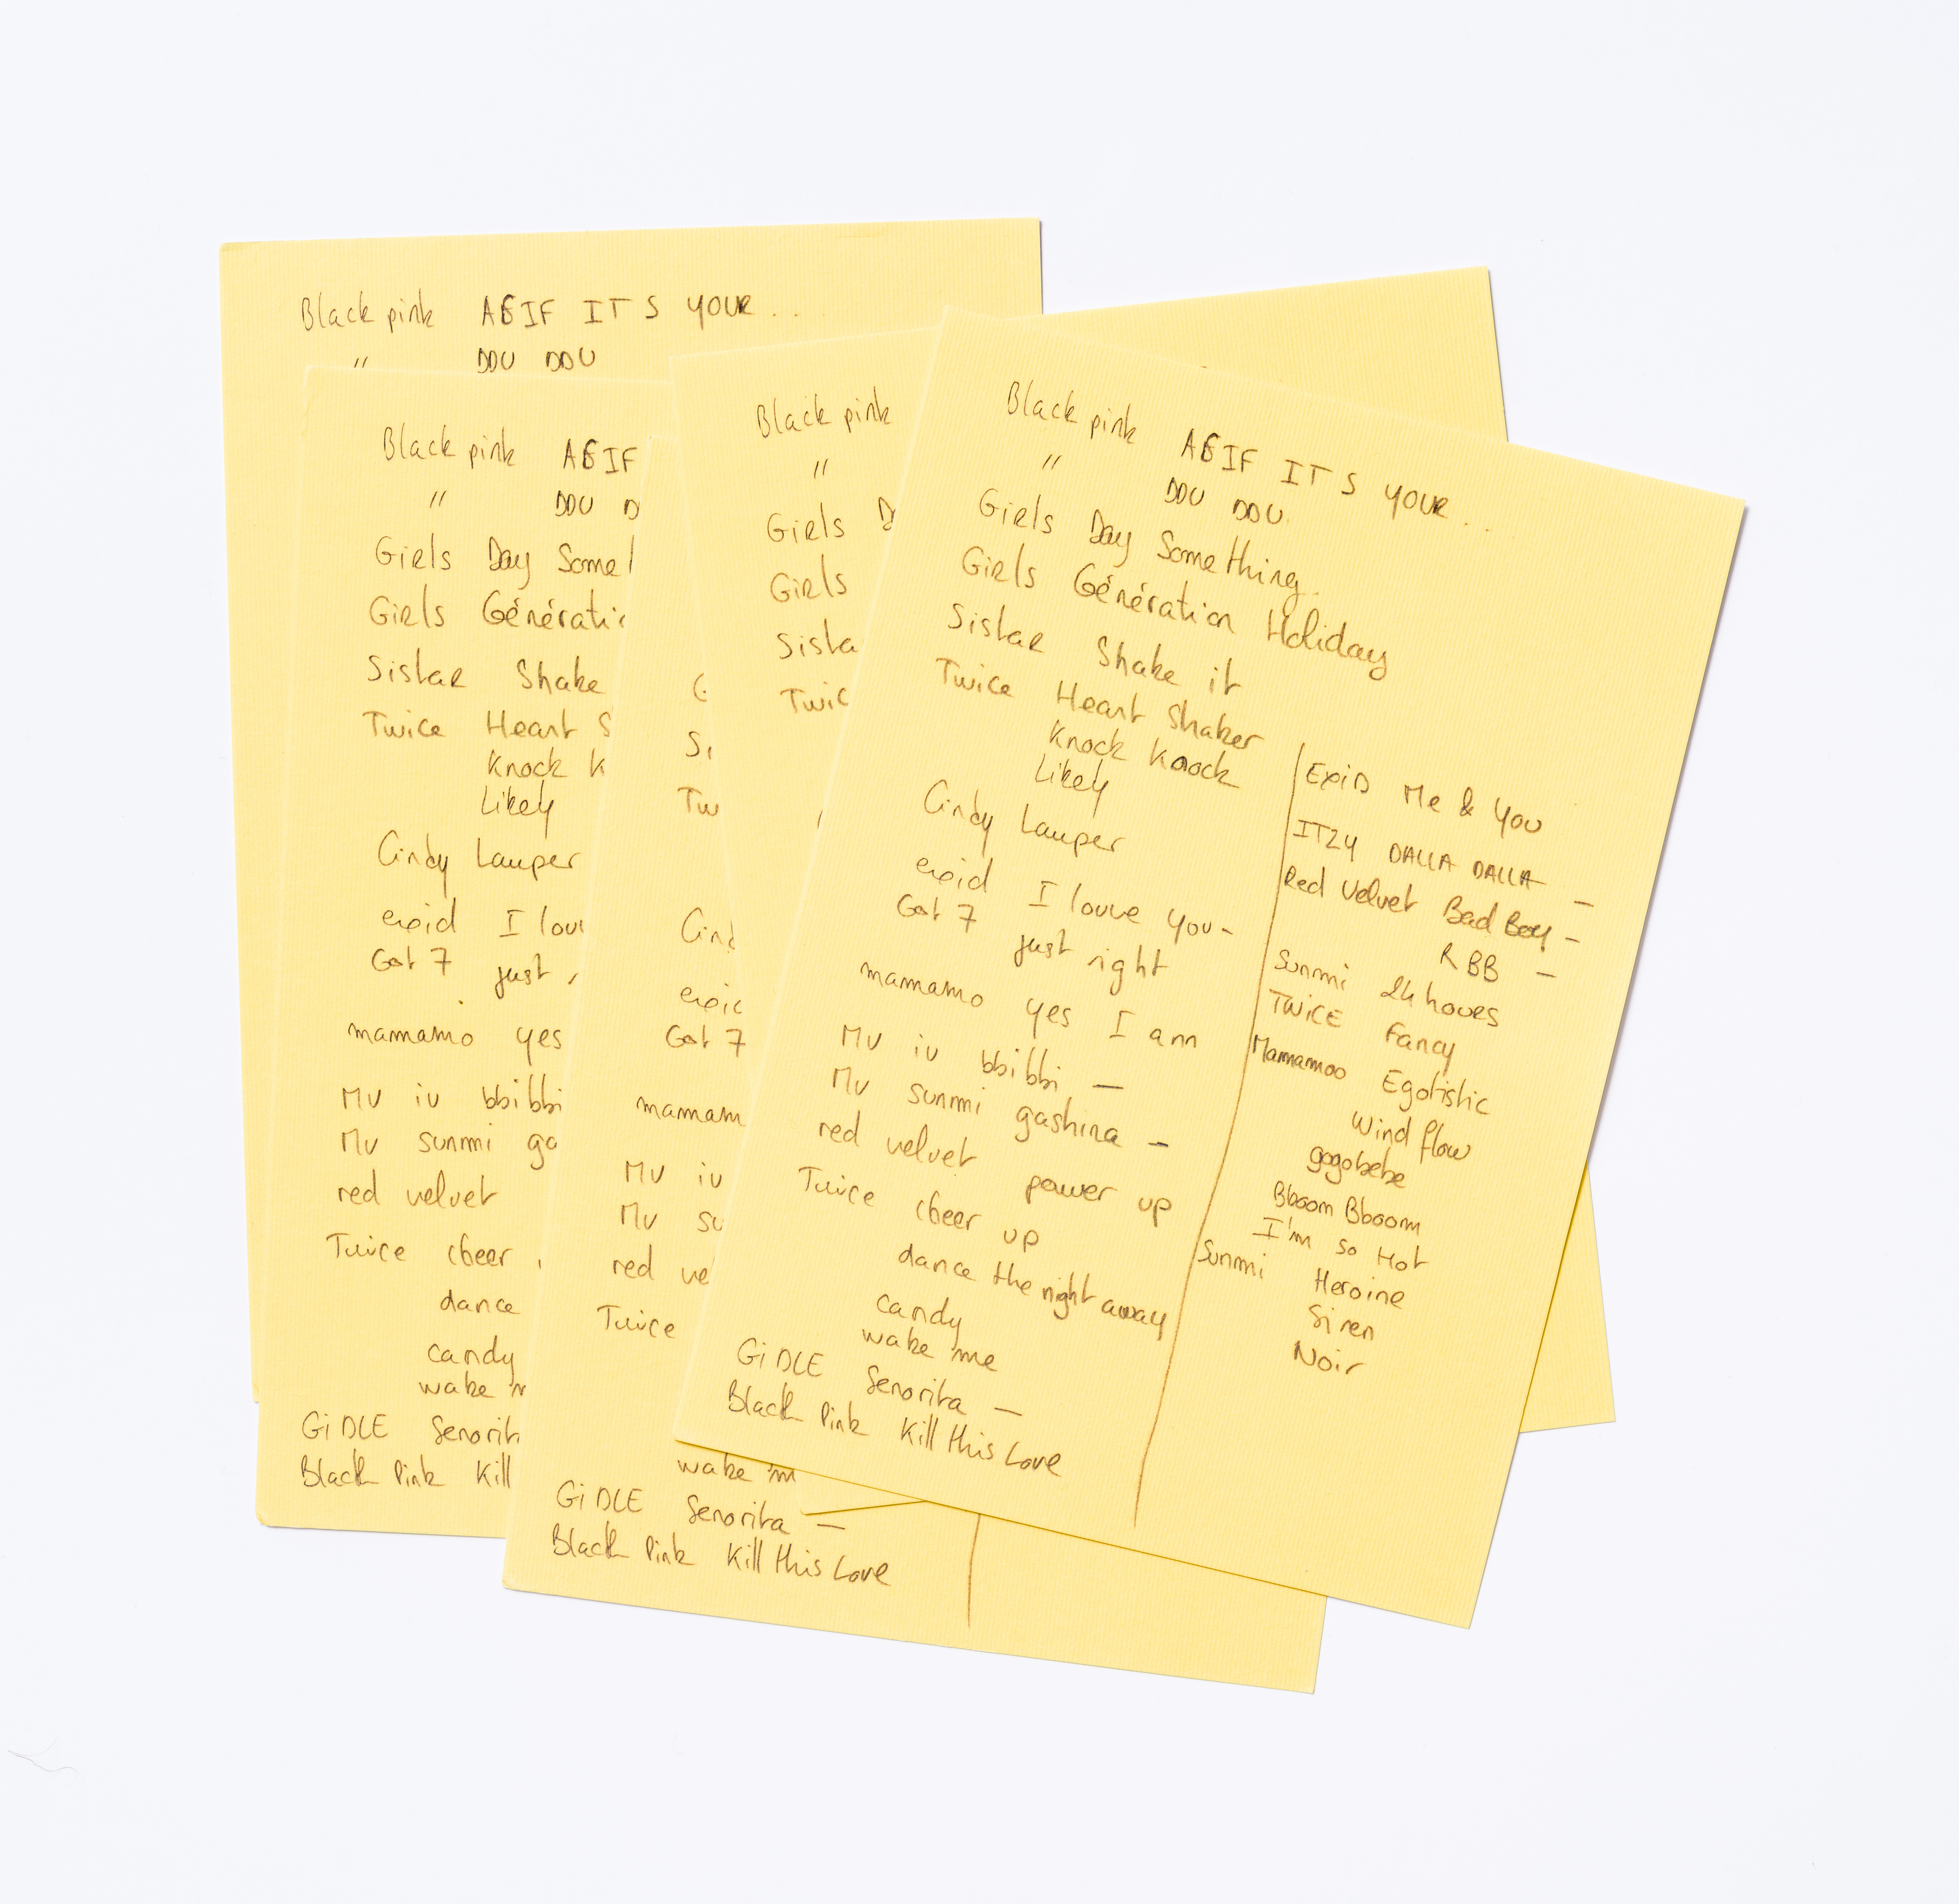 Black pink AGIF IT S YOUR...
" DDU DDU
Black pink AGIF
" DDU D
Girls Day Somet
Girls Génératio
Sistar Shake
Twice Heart S
Knock K
Likely
Cindy Lauper
exid I lou
Got 7 just
mamamo yes
MV iu bbibbi
MV sunmi ga
red velvet
Twice cheer
dance
candy
wake m
Gi DLE Senorit
Black Pink Kill
G
Si
Tw
Cind
exid
Got 7
mamam
MV iu
MV su
red ve
Twice
wake m
Gi DLE Senorita –
Black Pink Kill this Love
Black pink
"
Girls D
Girls
Sista
Twic
Black pink AGIF IT S YOUR...
" DDU DDU
Girls Day Something
Girls Génération Holiday
Sistar Shake it
Twice Heart Shaker
Knock Knock
Likely
Cindy Lauper
exid I louve you-
Got 7 just right
mamamo yes I am
MV iu bbibbi –
MV sunmi gashina –
red velvet power up
Twice cheer up
dance the night away
candy
wake me
Gi DLE Senorita –
Black Pink Kill this Love
Exid Me & You
ITZY DALLA DALLA –
Red Velvet Bad Boy –
RBB –
Sunmi 24 hours
TWICE Fancy
Mamamoo Egotistic
Wind flow
gogobebe
Bboom Bboom
I'm so Hot
Sunmi Heroine
Siren
Noir